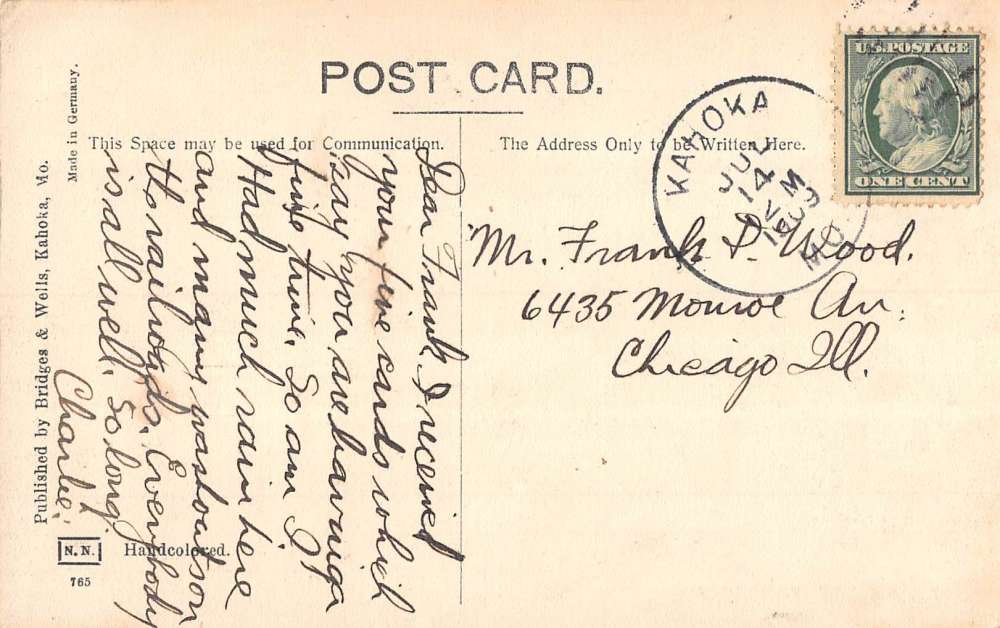 POST CARD.
This Space may be used for Communication.
The Address Only to be Written Here.
U.S. POSTAGE
ONE CENT
KAHOKA
JUL
14
M
1909
MO.
Mr. Frank P. Wood.
6435 Monroe Av.
Chicago Ill.
Dear Frank. I received
your fine cards which
say you are having a
fine time. So am I.
Had much rain here
and many washouts on
the railroads. Everybody
is all well. So long.
Charlie.
Made in Germany.
Published by Bridges & Wells, Kahoka, Mo.
N. N.
765
Handcolored.